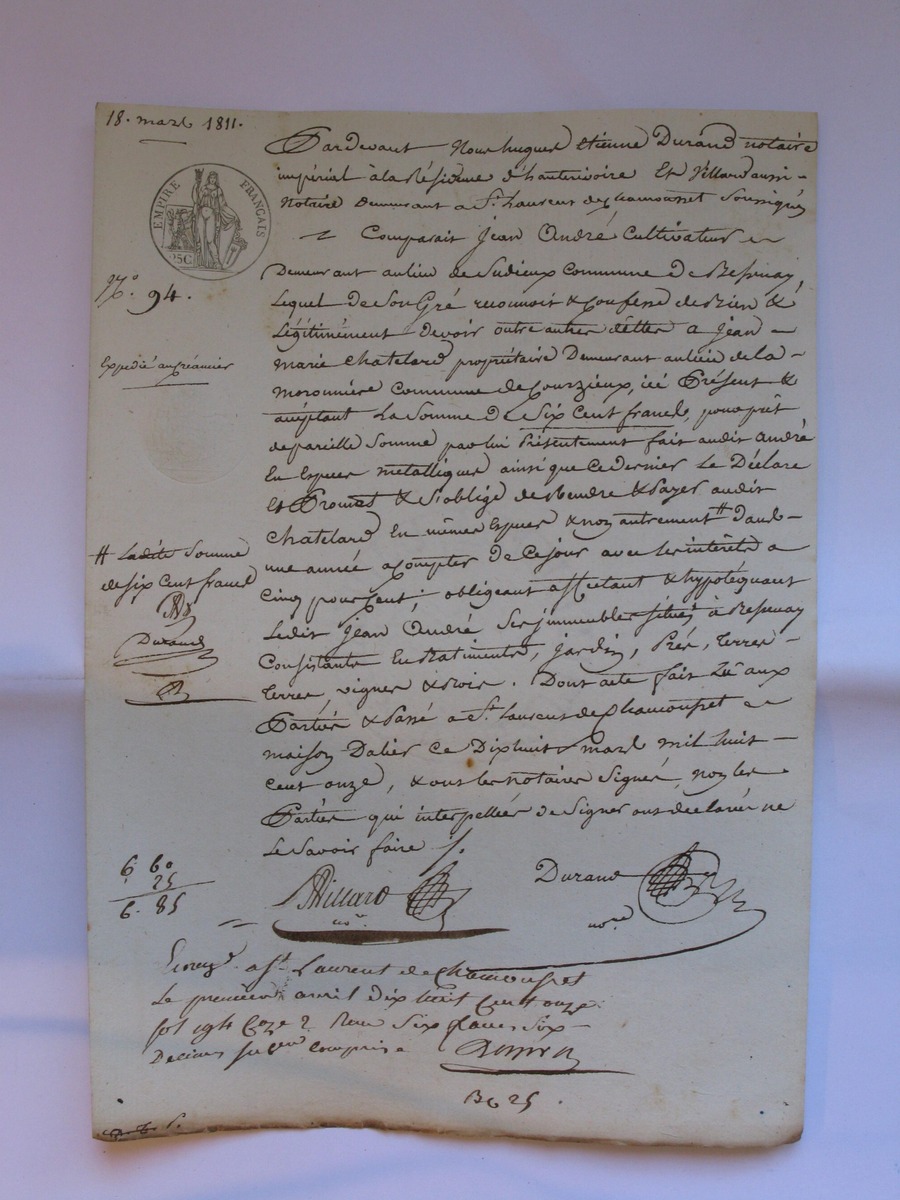 18. mars 1811.
EMPIRE FRANÇAIS
25C
N.° 94.
Expédié au créancier
Pardevant Nous hugues etienne Durand notaire
impérial à la Résidence d'hauterivoire Et Villard aussi
Notaire Demeurant a St. Laurent de chamousset Soussignés
Comparait Jean André Cultivateur
Demeurant au lieu de Sudieux Commune de Bessenay,
Lequel de Son Gré reconnoit & Confesse de Bien &
Légitimément Devoir outre autres dettes a Jean
marie Chatelard propriétaire Demeurant au lieu de la
moronnière Commune de Courzieux, icé Présent &
acceptant La Somme de Six Cent francs, pour prêt
de pareille Somme par lui Présentement fait audit André
En Espèces metalliques ainsi que ce dernier Le Déclare
Et Promet & S'oblige de Rendre & Payer audit
Chatelard En mêmes Espèces & non autrement # dans
une année a Compter De Ce jour avec les intérêts a
Cinq pour Cent; obligeant affectant & hypotéquant
Ledit Jean André Ses immeubles Situés à Bessenay
Consistants En Batiments, jardin, Prés, Terres
Terres, vignes & Bois. Dont acte fait Lû aux
Parties & Passé a St. Laurent de Chamousset
maison Dalier ce Dix huit mars mil huit
Cent onze, & ont les notaires Signé, non les
Parties qui interpellées de Signer ont déclaré ne
Le Savoir faire /.
# Ladite Somme
de six Cent francs
Durand
6 60
25
6. 85
Villard
nore
Durand
nore
Enregé. a St. Laurent de Chamousset
Le premier avril dix huit Cent onze
fol 194 Coze 2 Reçu Six francs Six
Décimes subon comprise
Bc 25.